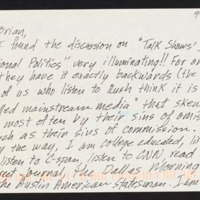 9
Brian,
I found the discussion on "Talk Shows'
ional Politics" very illuminating!! For on
they have it exactly backwards (the
of us who listen to Rush think it is
lled mainstream media" that skew
most often by their sins of omiss
ch as their sins of commission.
By the way, I am college educated, li
listen to C-span, listen to CNN, read
reet Journal, the Dallas Morning
the Austin American Statesman. I am